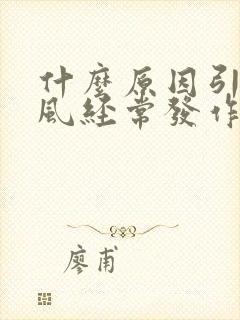 什麼原因引
風經常發作
廖甫